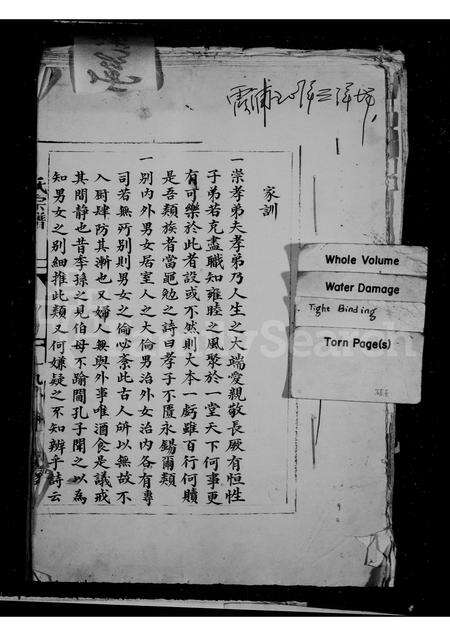 家訓
一崇孝弟夫孝弟乃人生之大端愛親敬長厥有恒性
子弟若克盡職知雍睦之風聚於一堂天下何事更
有可樂於此者設或不然則大本一虧雖百行何贖
是吾類族者當黽勉之詩曰孝子不匱永錫爾類
一別内外男女居室人之大倫男治外女治内各有專
司若無所别則男女之倫必紊此古人所以無故不
入厨肆防其漸也又婦人無與外事唯酒食是議戒
其閒静也昔季孫之見伯母不踰閾孔子聞之以為
知男女之别細推此類又何嫌疑之不知辨乎詩云
氏宗譜
Whole Volume
Water Damage
Tight Binding
Torn Page(s)